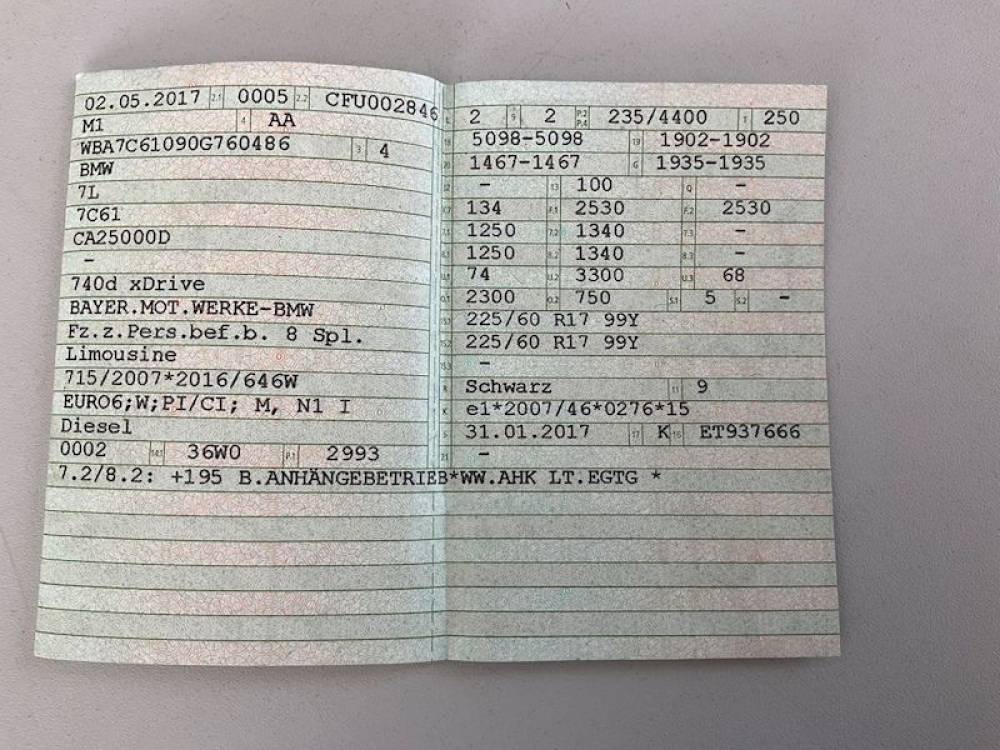 02.05.2017 2.1 0005 2.2 CFU002846
M1 4 AA
WBA7C61090G760486 3 4
BMW
7L
7C61
CA25000D
–
740d xDrive
BAYER.MOT.WERKE-BMW
Fz.z.Pers.bef.b. 8 Spl.
Limousine
715/2007*2016/646W
EURO6;W;PI/CI; M, N1 I
Diesel
0002 14.1 36W0 P.1 2993
L 2 9 2 P.2 P.4 235/4400 T 250
18 5098-5098 19 1902-1902
20 1467-1467 G 1935-1935
12 – 13 100 Q –
V.7 134 F.1 2530 F.2 2530
7.1 1250 7.2 1340 7.3 –
8.1 1250 8.2 1340 8.3 –
U.1 74 U.2 3300 U.3 68
O.1 2300 O.2 750 S.1 5 S.2 –
15.1 225/60 R17 99Y
15.2 225/60 R17 99Y
15.3 –
R Schwarz 11 9
K e1*2007/46*0276*15
6 31.01.2017 17 K 16 ET937666
21 –
7.2/8.2: +195 B.ANHÄNGEBETRIEB*WW.AHK LT.EGTG *